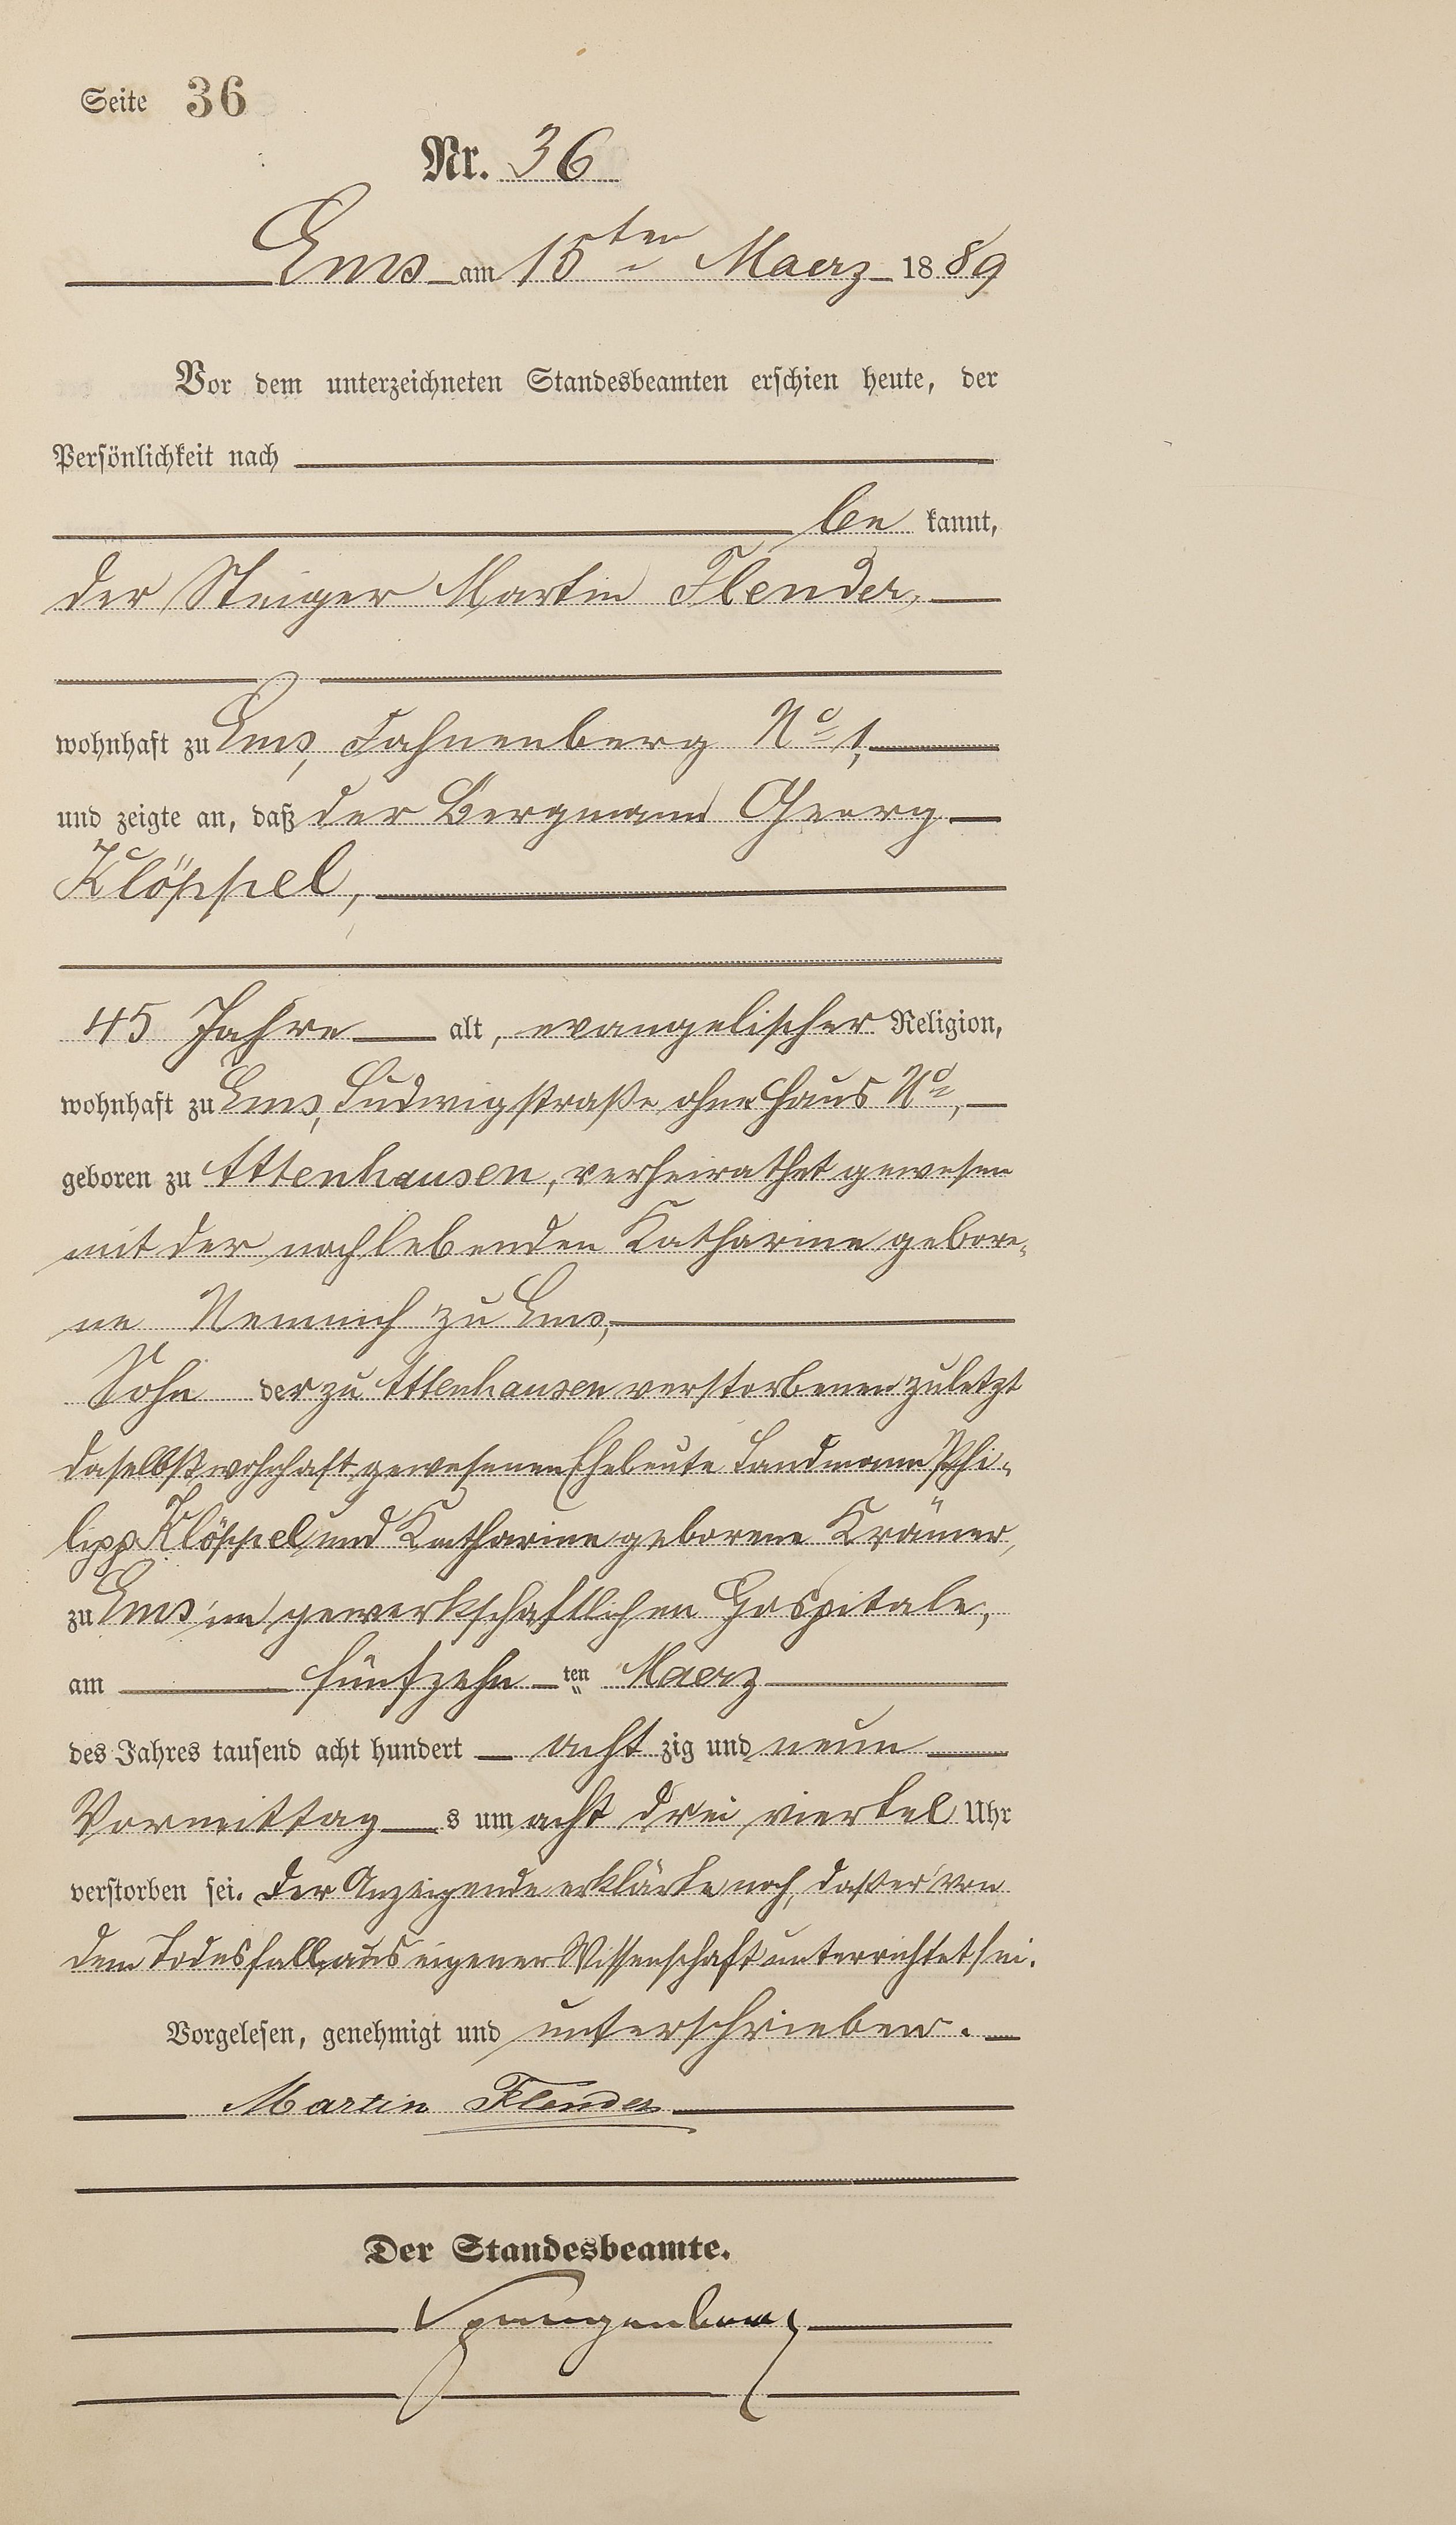 Seite 36
Nr. 36
Ems am 15ten Maerz 1889
Vor dem unterzeichneten Standesbeamten erschien heute, der
Persönlichkeit nach
be kannt,
der Steiger Martin Flender,
wohnhaft zu Ems, Fahnenberg No 1,
und zeigte an, daß der Bergmann Georg
Klöppel,
45 Jahre alt, evangelischer Religion,
wohnhaft zu Ems, Ludwigstraße ohne Haus No,
geboren zu Attenhausen, verheirathet gewesen
mit der nachlebenden Katharine gebore-
ne Nemnich zu Ems,
Sohn der zu Attenhausen verstorbenen zuletzt
daselbst wohnhaft gewesenen Eheleute Landmann Phi-
lipp Klöppel und Katharine geborene Krämer,
zu Ems im gewerkschaftlichen Hospitale,
am fünfzehn ten Maerz
des Jahres tausend acht hundert acht zig und neun
Vormittag s um acht drei viertel Uhr
verstorben sei. Der Anzeigende erklärte noch, daß er von
dem Todesfall aus eigener Wissenschaft unterrichtet sei.
Vorgelesen, genehmigt und unterschrieben.
Martin Flender
Der Standesbeamte.
Spangenberg